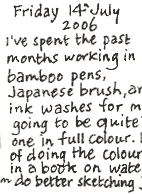 Friday 14th July
2006
I've spent the past
months working in
bamboo pens,
Japanese brush, an
ink washes for m
going to be quite
one in full colour.
of doing the colour
in a book on wate
do better sketching.